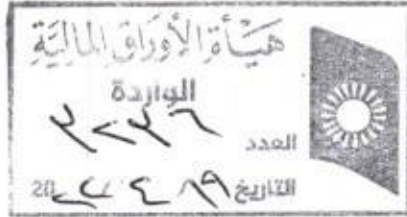 هيأة الأوراق المالية
الواردة
العدد ٣٢٣٦
التاريخ ١٩ / ٤ / 20٢٢